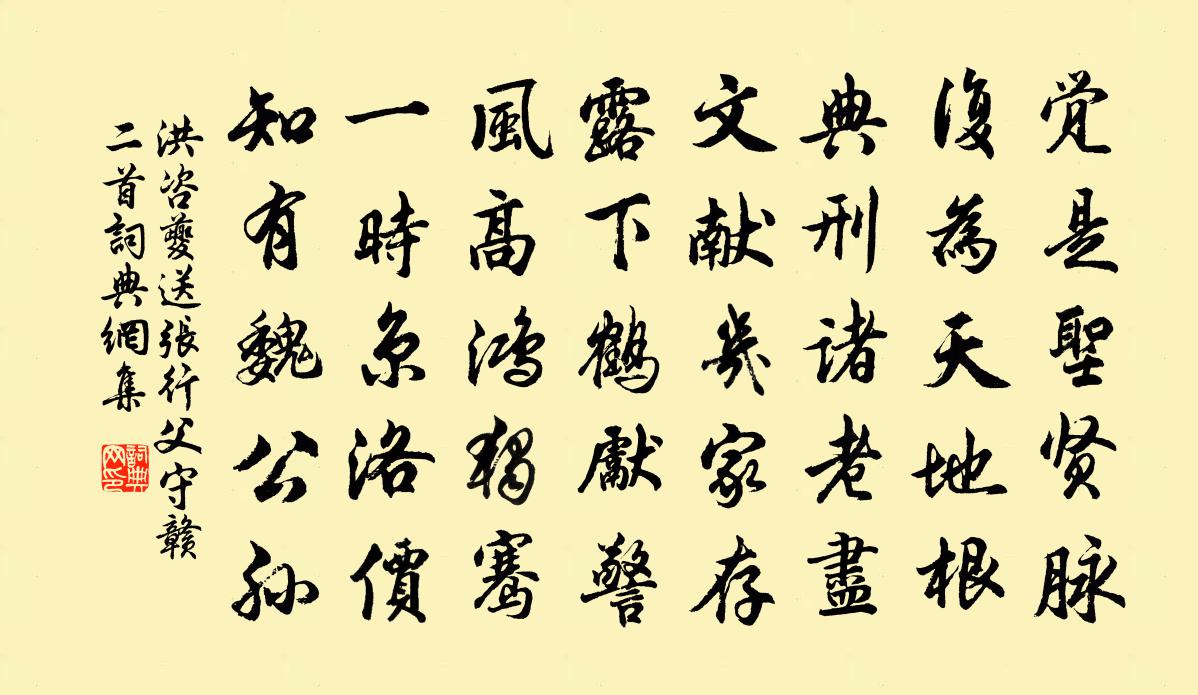 觉是聖贤脉
復為天地根
典刑诸老盡
文献幾家存
露下鶴獻警
風高鴻獨騫
一時京洛價
知有魏公孙
洪咨夔送張行父守赣
二首詞典網集
詞典
网印